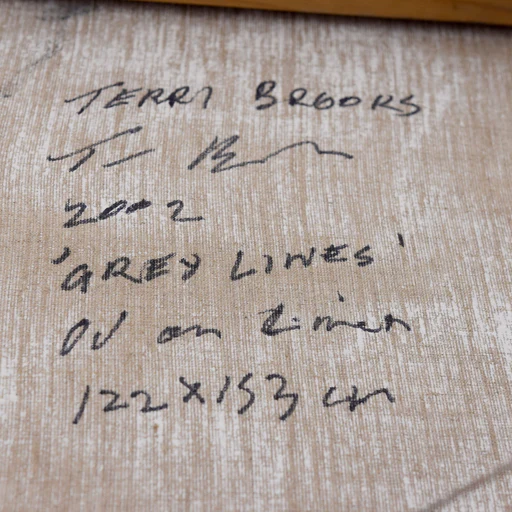 TERRY BROOKS
2002
'GREY LINES'
Oil on Linen
122 x 153 cm